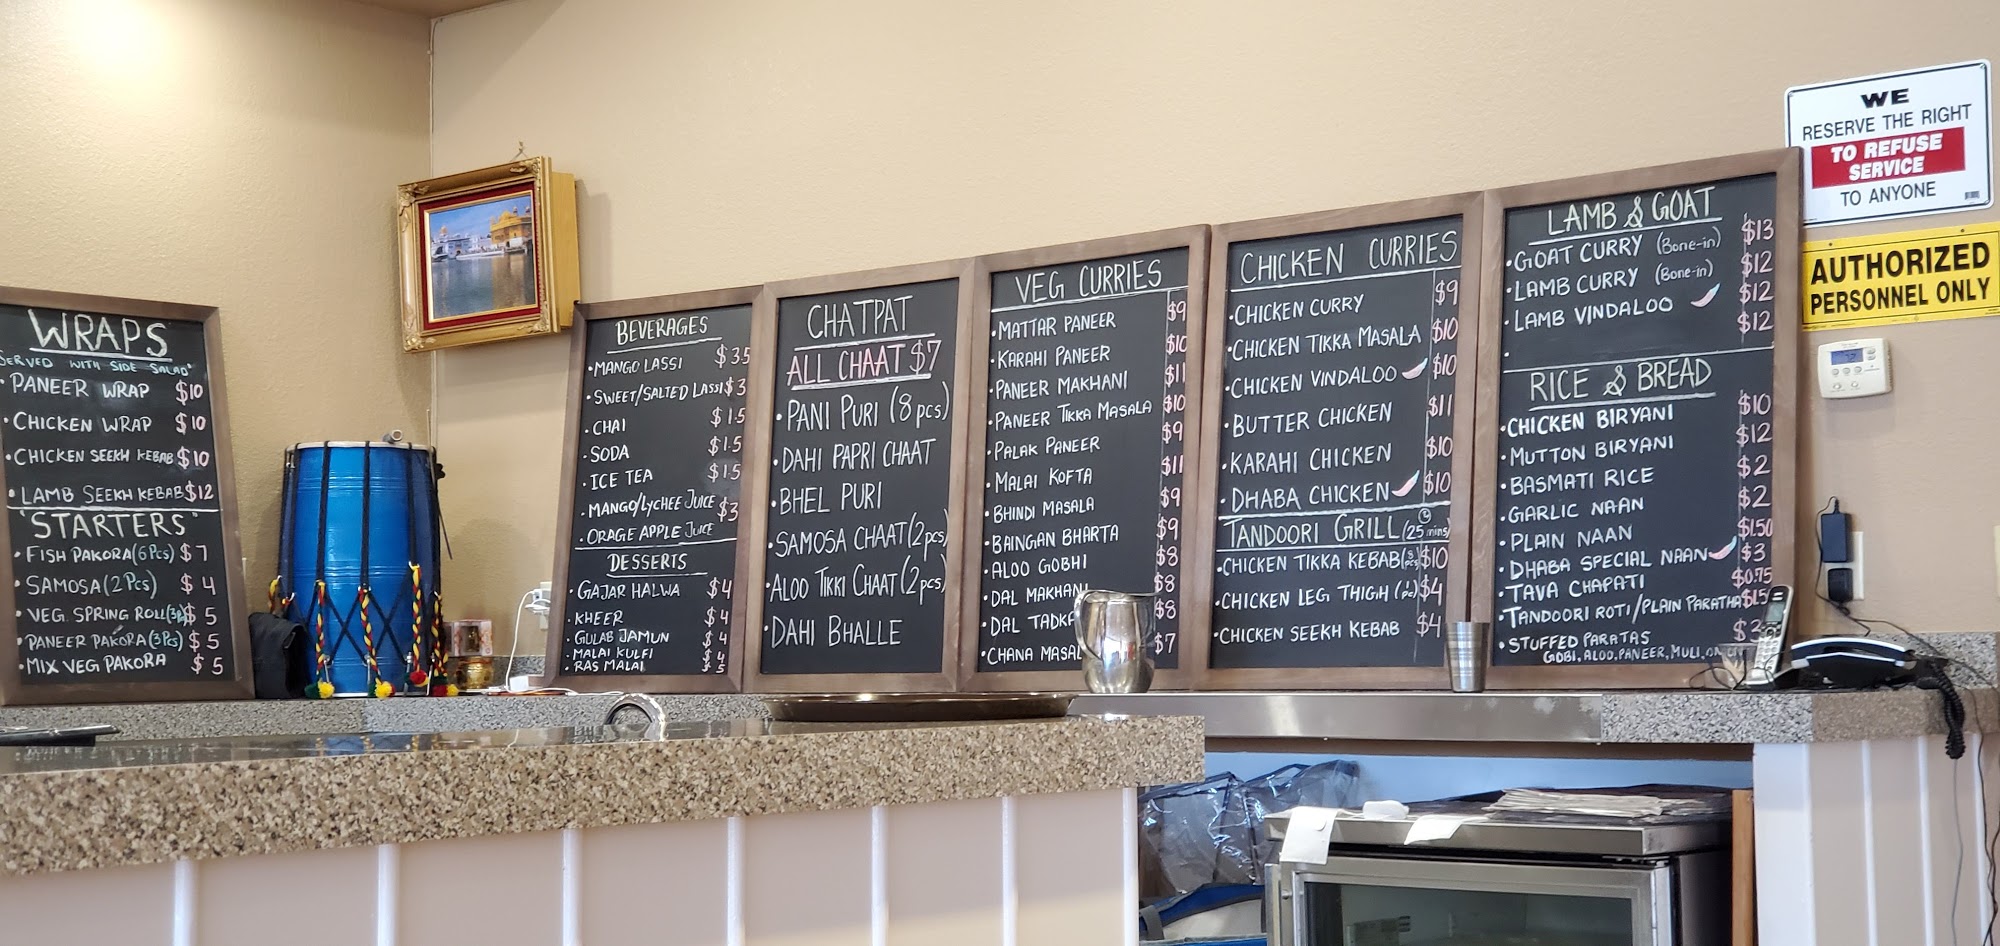 WRAPS
SERVED WITH SIDE SALAD
• PANEER WRAP $10
• CHICKEN WRAP $10
• CHICKEN SEEKH KEBAB $10
• LAMB SEEKH KEBAB $12
"STARTERS"
• FISH PAKORA (6 Pcs) $7
• SAMOSA (2 Pcs) $4
• VEG. SPRING ROLL $5
• PANEER PAKORA (3 Pcs) $5
• MIX VEG PAKORA $5
BEVERAGES
• MANGO LASSI $3.5
• SWEET/SALTED LASSI $3
• CHAI $1.5
• SODA $1.5
• ICE TEA $1.5
• MANGO/LYCHEE JUICE $3
• ORAGE APPLE JUICE
DESSERTS
• GAJAR HALWA $4
• KHEER $4
• GULAB JAMUN $4
• MALAI KULFI $4
• RAS MALAI $5
CHATPAT
ALL CHAAT $7
• PANI PURI (8 pcs)
• DAHI PAPRI CHAAT
• BHEL PURI
• SAMOSA CHAAT (2 pcs)
• ALOO TIKKI CHAAT (2 pcs)
• DAHI BHALLE
VEG CURRIES
• MATTAR PANEER $9
• KARAHI PANEER $10
• PANEER MAKHANI $11
• PANEER TIKKA MASALA $10
• PALAK PANEER $9
• MALAI KOFTA $11
• BHINDI MASALA $9
• BAINGAN BHARTA $9
• ALOO GOBHI $8
• DAL MAKHANI $8
• DAL TADKA $8
• CHANA MASAL $7
CHICKEN CURRIES
• CHICKEN CURRY $9
• CHICKEN TIKKA MASALA $10
• CHICKEN VINDALOO $10
• BUTTER CHICKEN $11
• KARAHI CHICKEN $10
• DHABA CHICKEN $10
TANDOORI GRILL (25 mins)
• CHICKEN TIKKA KEBAB $10
• CHICKEN LEG THIGH $4
• CHICKEN SEEKH KEBAB $4
LAMB & GOAT
• GOAT CURRY (Bone-in) $13
• LAMB CURRY (Bone-in) $12
• LAMB VINDALOO $12
• $12
RICE & BREAD
• CHICKEN BIRYANI $10
• MUTTON BIRYANI $12
• BASMATI RICE $2
• GARLIC NAAN $2
• PLAIN NAAN $1.50
• DHABA SPECIAL NAAN $3
• TAVA CHAPATI $0.75
• TANDOORI ROTI/PLAIN PARATHA $1.5
• STUFFED PARATAS
GOBI, ALOO, PANEER, MULI,
WE
RESERVE THE RIGHT
TO REFUSE
SERVICE
TO ANYONE
AUTHORIZED
PERSONNEL ONLY